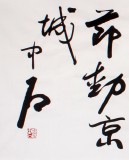 节动京
城
中石